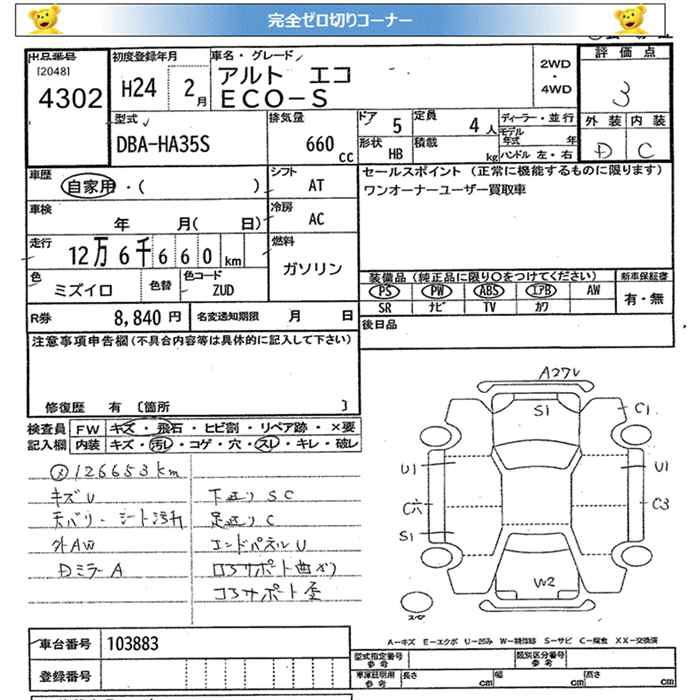 完全ゼロ切りコーナー
出品番号
[2048]
4302
初度登録年月
H24 2月
車名・グレード
アルト エコ
ECO-S
2WD
・
4WD
評価点
3
外装 内装
D C
型式
DBA-HA35S
排気量
660 cc
ドア 5
定員 4人
形状 HB
積載 kg
ディーラー・並行
モデル年式 年
ハンドル 左・右
車歴
自家用・( )
シフト
AT
セールスポイント (正常に機能するものに限ります)
ワンオーナーユーザー買取車
車検
年 月( 日)
冷房
AC
走行
12万6千660km
燃料
ガソリン
色
ミズイロ
色替
色コード
ZUD
装備品 (純正品に限り〇をつけてください)
新車保証書
PS PW ABS エアB AW
有・無
SR ナビ TV カワ
R券 8,840円
名変通知期限 月 日
後日品
注意事項申告欄(不具合内容等は具体的に記入して下さい)
修復歴 有 [箇所 ]
検査員記入欄
FW キズ・飛石・ヒビ割・リペア跡・×要
内装 キズ・汚レ・コゲ・穴・スレ・キレ・破レ
126653km
キズU
下廻りSC
天バリ・シート汚れ
足廻りC
外AW
エンドパネルU
DミラーA
ロアサポート曲がり
コアサポート歪
A27U
S1
C1
U1
U1
C六
C3
S1
W2
スペア
A-キズ E-エクボ U-凹み W-補修跡 S-サビ C-腐食 XX-交換済
車台番号 103883
型式指定番号
参考
類別区分番号
参考
登録番号
車庫証明用
参考
長さ cm
幅 cm
高さ cm